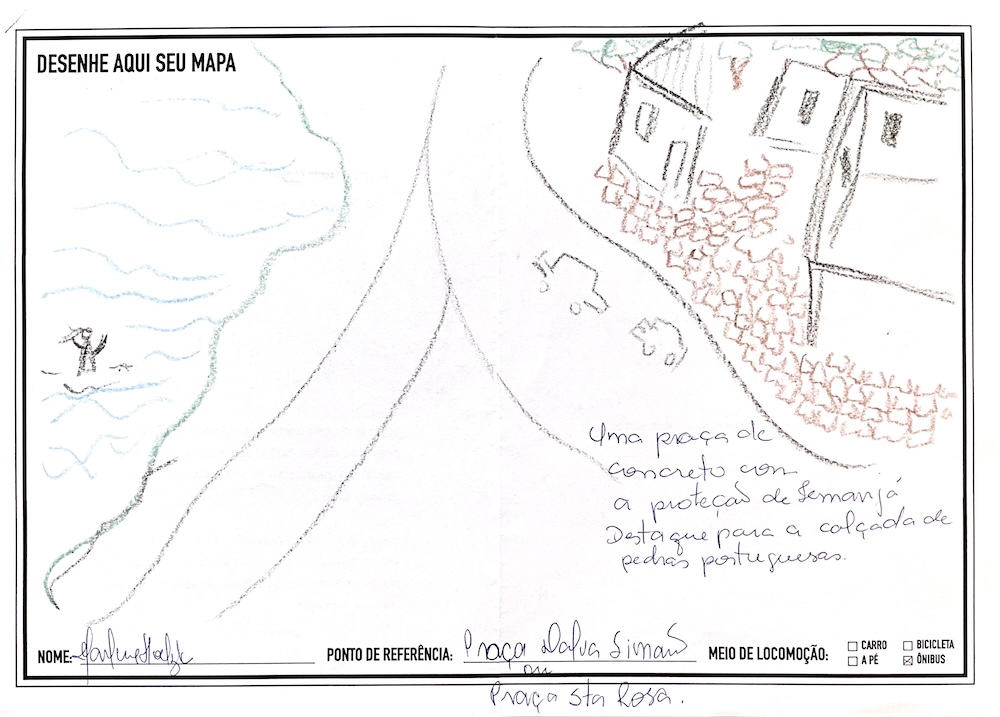 DESENHE AQUI SEU MAPA
Uma praça de
concreto com
a proteção de Iemanjá
Destaque para a calçada de
pedras portuguesas.
NOME:
PONTO DE REFERÊNCIA: Praça Dalva Simão
ou
Praça Sta Rosa.
MEIO DE LOCOMOÇÃO:
CARRO
BICICLETA
A PÉ
ÔNIBUS